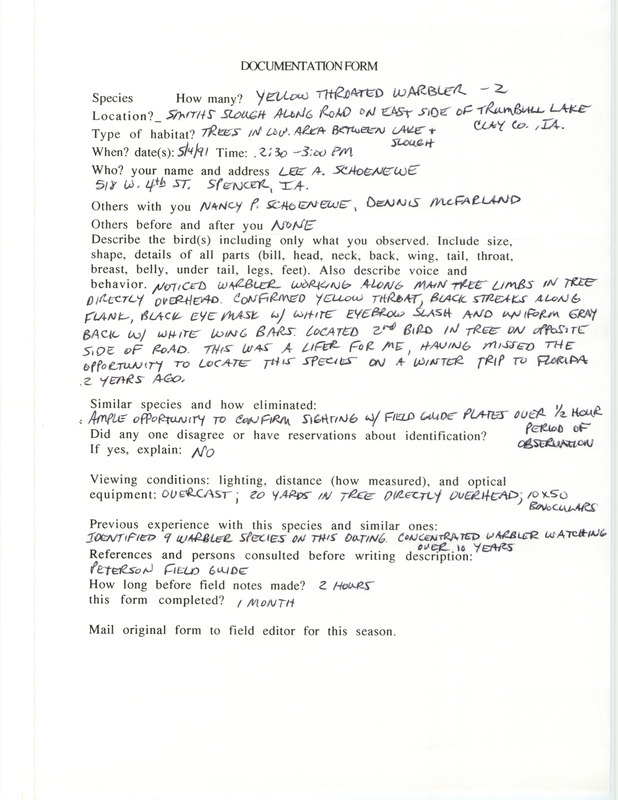 DOCUMENTATION FORM
Species How many? YELLOW THROATED WARBLER - 2
Location? SMITHS SLOUGH ALONG ROAD ON EAST SIDE OF TRUMBULL LAKE
CLAY CO., IA.
Type of habitat? TREES IN LOW AREA BETWEEN LAKE +
SLOUGH
When? date(s): 5/4/91 Time: 2:30 - 3:00 PM
Who? your name and address LEE A. SCHOENEWE
518 W. 4th ST. SPENCER, IA.
Others with you NANCY P. SCHOENEWE, DENNIS MCFARLAND
Others before and after you NONE
Describe the bird(s) including only what you observed. Include size,
shape, details of all parts (bill, head, neck, back, wing, tail, throat,
breast, belly, under tail, legs, feet). Also describe voice and
behavior. NOTICED WARBLER WORKING ALONG MAIN TREE LIMBS IN TREE
DIRECTLY OVERHEAD. CONFIRMED YELLOW THROAT, BLACK STREAKS ALONG
FLANK, BLACK EYE MASK W/ WHITE EYEBROW SLASH AND UNIFORM GRAY
BACK W/ WHITE WING BARS. LOCATED 2nd BIRD IN TREE ON OPPOSITE
SIDE OF ROAD. THIS WAS A LIFER FOR ME, HAVING MISSED THE
OPPORTUNITY TO LOCATE THIS SPECIES ON A WINTER TRIP TO FLORIDA
2 YEARS AGO.
Similar species and how eliminated:
AMPLE OPPORTUNITY TO CONFIRM SIGHTING W/ FIELD GUIDE PLATES OVER 1/2 HOUR
PERIOD OF
OBSERVATION
Did any one disagree or have reservations about identification?
If yes, explain: NO
Viewing conditions: lighting, distance (how measured), and optical
equipment: OVERCAST; 20 YARDS IN TREE DIRECTLY OVERHEAD; 10X50
BINOCULARS
Previous experience with this species and similar ones:
IDENTIFIED 9 WARBLER SPECIES ON THIS OUTING. CONCENTRATED WARBLER WATCHING
OVER 10 YEARS
References and persons consulted before writing description:
PETERSON FIELD GUIDE
How long before field notes made? 2 HOURS
this form completed? 1 MONTH
Mail original form to field editor for this season.